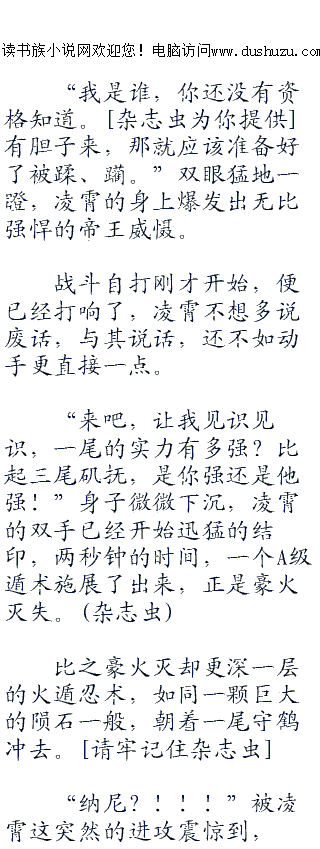 读书族小说网欢迎您！电脑访问www.dushuzu.com
“我是谁，你还没有资
格知道。[杂志虫为你提供]
有胆子来，那就应该准备好
了被蹂、躏。”双眼猛地一
瞪，凌霄的身上爆发出无比
强悍的帝王威慑。
战斗自打刚才开始，便
已经打响了，凌霄不想多说
废话，与其说话，还不如动
手更直接一点。
“来吧，让我见识见
识，一尾的实力有多强？比
起三尾矶抚，是你强还是他
强！”身子微微下沉，凌霄
的双手已经开始迅猛的结
印，两秒钟的时间，一个A级
遁术施展了出来，正是豪火
灭失。(杂志虫)
比之豪火灭却更深一层
的火遁忍术，如同一颗巨大
的陨石一般，朝着一尾守鹤
冲去。[请牢记住杂志虫]
“纳尼？！！！”被凌
霄这突然的进攻震惊到，